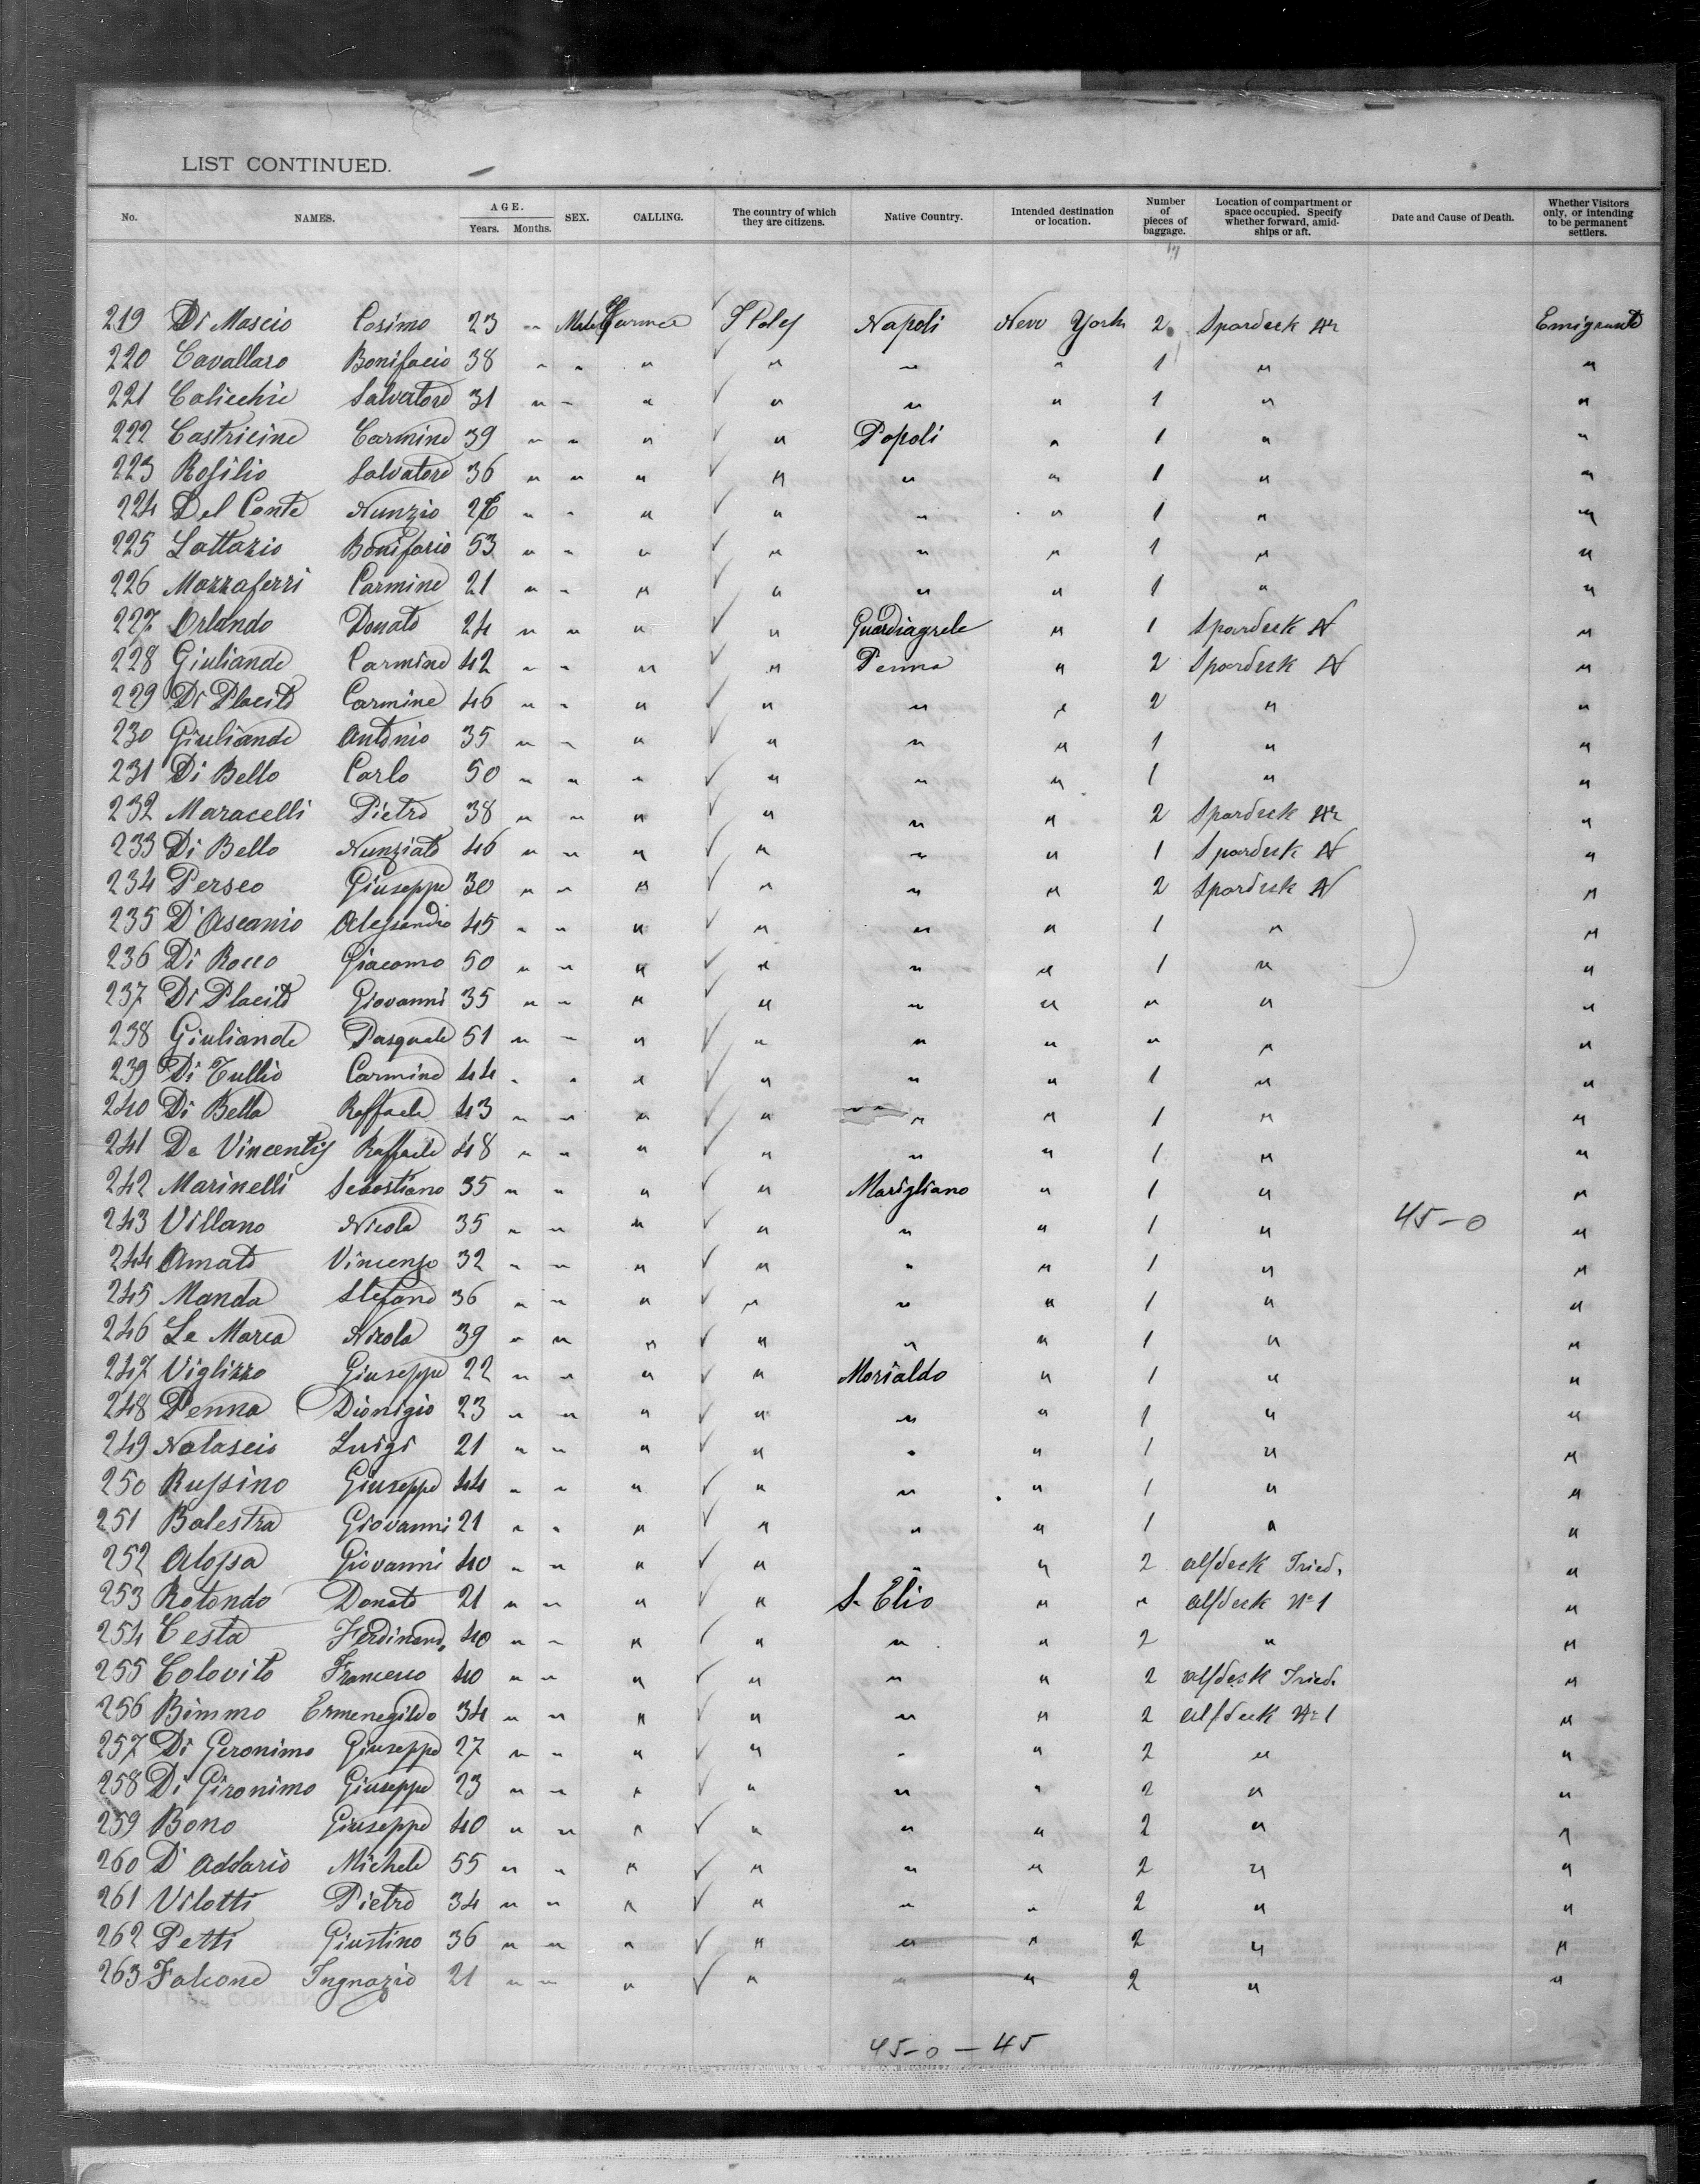 LIST CONTINUED.
No. NAMES. AGE. Years. Months. SEX. CALLING. The country of which they are citizens. Native Country. Intended destination or location. Number of pieces of baggage. Location of compartment or space occupied. Specify whether forward, amid-ships or aft. Date and Cause of Death. Whether Visitors only, or intending to be permanent settlers.
219 Di Mascio Cosimo 23 " Male Farmer Italy Napoli New York 2 Spardeck Emigrant
220 Cavallaro Bonifacio 38 " " " " " " 1 " "
221 Calicchie Salvatore 31 " " " " " " 1 " "
222 Castricine Carmine 39 " " " " Popoli " 1 " "
223 Rosilio Salvatore 36 " " " " " " 1 " "
224 Del Conte Nunzio " " " " " " 1 " "
225 Lattazio Bonifacio 53 " " " " " " 1 " "
226 Mazzaferri Carmine 21 " " " " " " 1 " "
227 Orlando Donato 24 " " " " Guardiagrele " 1 Spardeck N "
228 Giuliande Carmine 42 " " " " Penna " 2 Spardeck N "
229 Di Placito Carmine 46 " " " " " " 2 " "
230 Giuliande Antonio 35 " " " " " " 1 " "
231 Di Bello Carlo 50 " " " " " " 1 " "
232 Maracelli Pietro 38 " " " " " " 2 Spardeck "
233 Di Bello Nunziato 46 " " " " " " 1 Spardeck N "
234 Perseo Giuseppe 30 " " " " " " 2 Spardeck N "
235 D'Ascanio Alessandro 45 " " " " " " 1 " "
236 Di Rocco Giacomo 50 " " " " " " 1 " "
237 Di Placito Giovanni 35 " " " " " " " " "
238 Giuliande Pasquale 51 " " " " " " " " "
239 Di Tullio Carmine 44 " " " " " " 1 " "
240 Di Bella Raffaele 43 " " " " " " 1 " "
241 De Vincentis Raffaele 48 " " " " " " 1 " "
242 Marinelli Sebastiano 35 " " " " Marigliano " 1 " "
243 Villano Nicola 35 " " " " " " 1 " 45-0 "
244 Amato Vincenzo 32 " " " " " " 1 " "
245 Manda Stefano 36 " " " " " " 1 " "
246 La Marca Nicola 39 " " " " " " 1 " "
247 Viglizzo Giuseppe 22 " " " " Morialdo " 1 " "
248 Penna Dionigio 23 " " " " " " 1 " "
249 Natascio Luigi 21 " " " " " " 1 " "
250 Russino Giuseppe 44 " " " " " " 1 " "
251 Balestra Giovanni 21 " " " " " " 1 " "
252 Alossa Giovanni 40 " " " " " " 2 "
253 Rotondo Donato 21 " " " " S. Elio " " Nº 1 "
254 Testa Ferdinand. 40 " " " " " " 2 " "
255 Colovito Francesco 40 " " " " " " 2 "
256 Bimmo Ermenegildo 34 " " " " " " 2 "
257 Di Geronimo Giuseppe 27 " " " " " " 2 " "
258 Di Gironimo Giuseppe 23 " " " " " " 2 " "
259 Bono Giuseppe 40 " " " " " " 2 " "
260 D'Addario Michele 55 " " " " " " 2 " "
261 Vilotti Pietro 34 " " " " " " 2 " "
262 Petti Giustino 36 " " " " " " 2 " "
263 Falcone Ingnazio 21 " " " " " " 2 " "
45-0-45